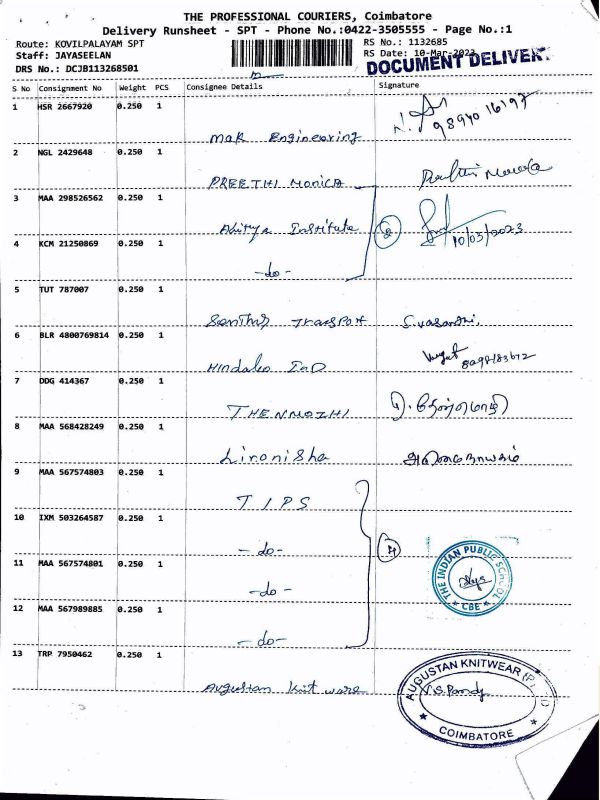 THE PROFESSIONAL COURIERS, Coimbatore
Delivery Runsheet - SPT - Phone No.:0422-3505555 - Page No.:1
Route: KOVILPALAYAM SPT
Staff: JAYASEELAN
DRS No.: DCJB113268501
RS No.: 1132685
RS Date: 10-Mar-2023
DOCUMENT DELIVERY
S No Consignment No Weight PCS Consignee Details Signature
1 HSR 2667920 0.250 1
mak Engineering 9894016197
2 NGL 2429648 0.250 1
PREETHI MONICA
3 MAA 298526562 0.250 1
Institute 2 10/03/2023
4 KCM 21250869 0.250 1
-do-
5 TUT 787007 0.250 1
Transport S.Vasanthi,
6 BLR 4800769814 0.250 1
Hindalco InD
7 DDG 414367 0.250 1
THENMOZHI
8 MAA 568428249 0.250 1
Lironisha
9 MAA 567574803 0.250 1
TIPS
10 IXM 503264587 0.250 1
-do- 4
11 MAA 567574801 0.250 1
-do-
THE INDIAN PUBLIC SCHOOL
CBE
12 MAA 567989885 0.250 1
-do-
13 TRP 7950462 0.250 1
Augustan Knit ware
AUGUSTAN KNITWEAR (P)
COIMBATORE